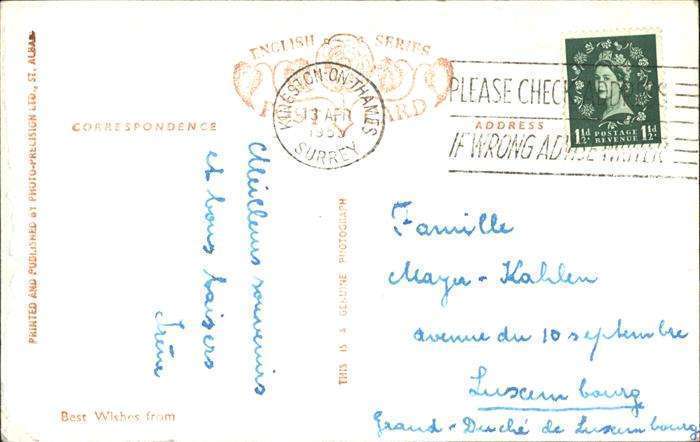 PRINTED AND PUBLISHED BY PHOTO-PRECISION LTD., ST. ALBANS
ENGLISH SERIES
CORRESPONDENCE
KINGSTON-ON-THAMES
13 APR
SURREY
PLEASE CHECK
ADDRESS
IF WRONG ADVISE WRITER
POSTAGE
REVENUE
1½d
1½d
Meilleurs souvenirs
et bons baisers
Irène
Best Wishes from
THIS IS A GENUINE PHOTOGRAPH
Famille
Mayer-Kahlen
avenue du 10 septembre
Luxembourg
Grand-Duché de Luxembourg